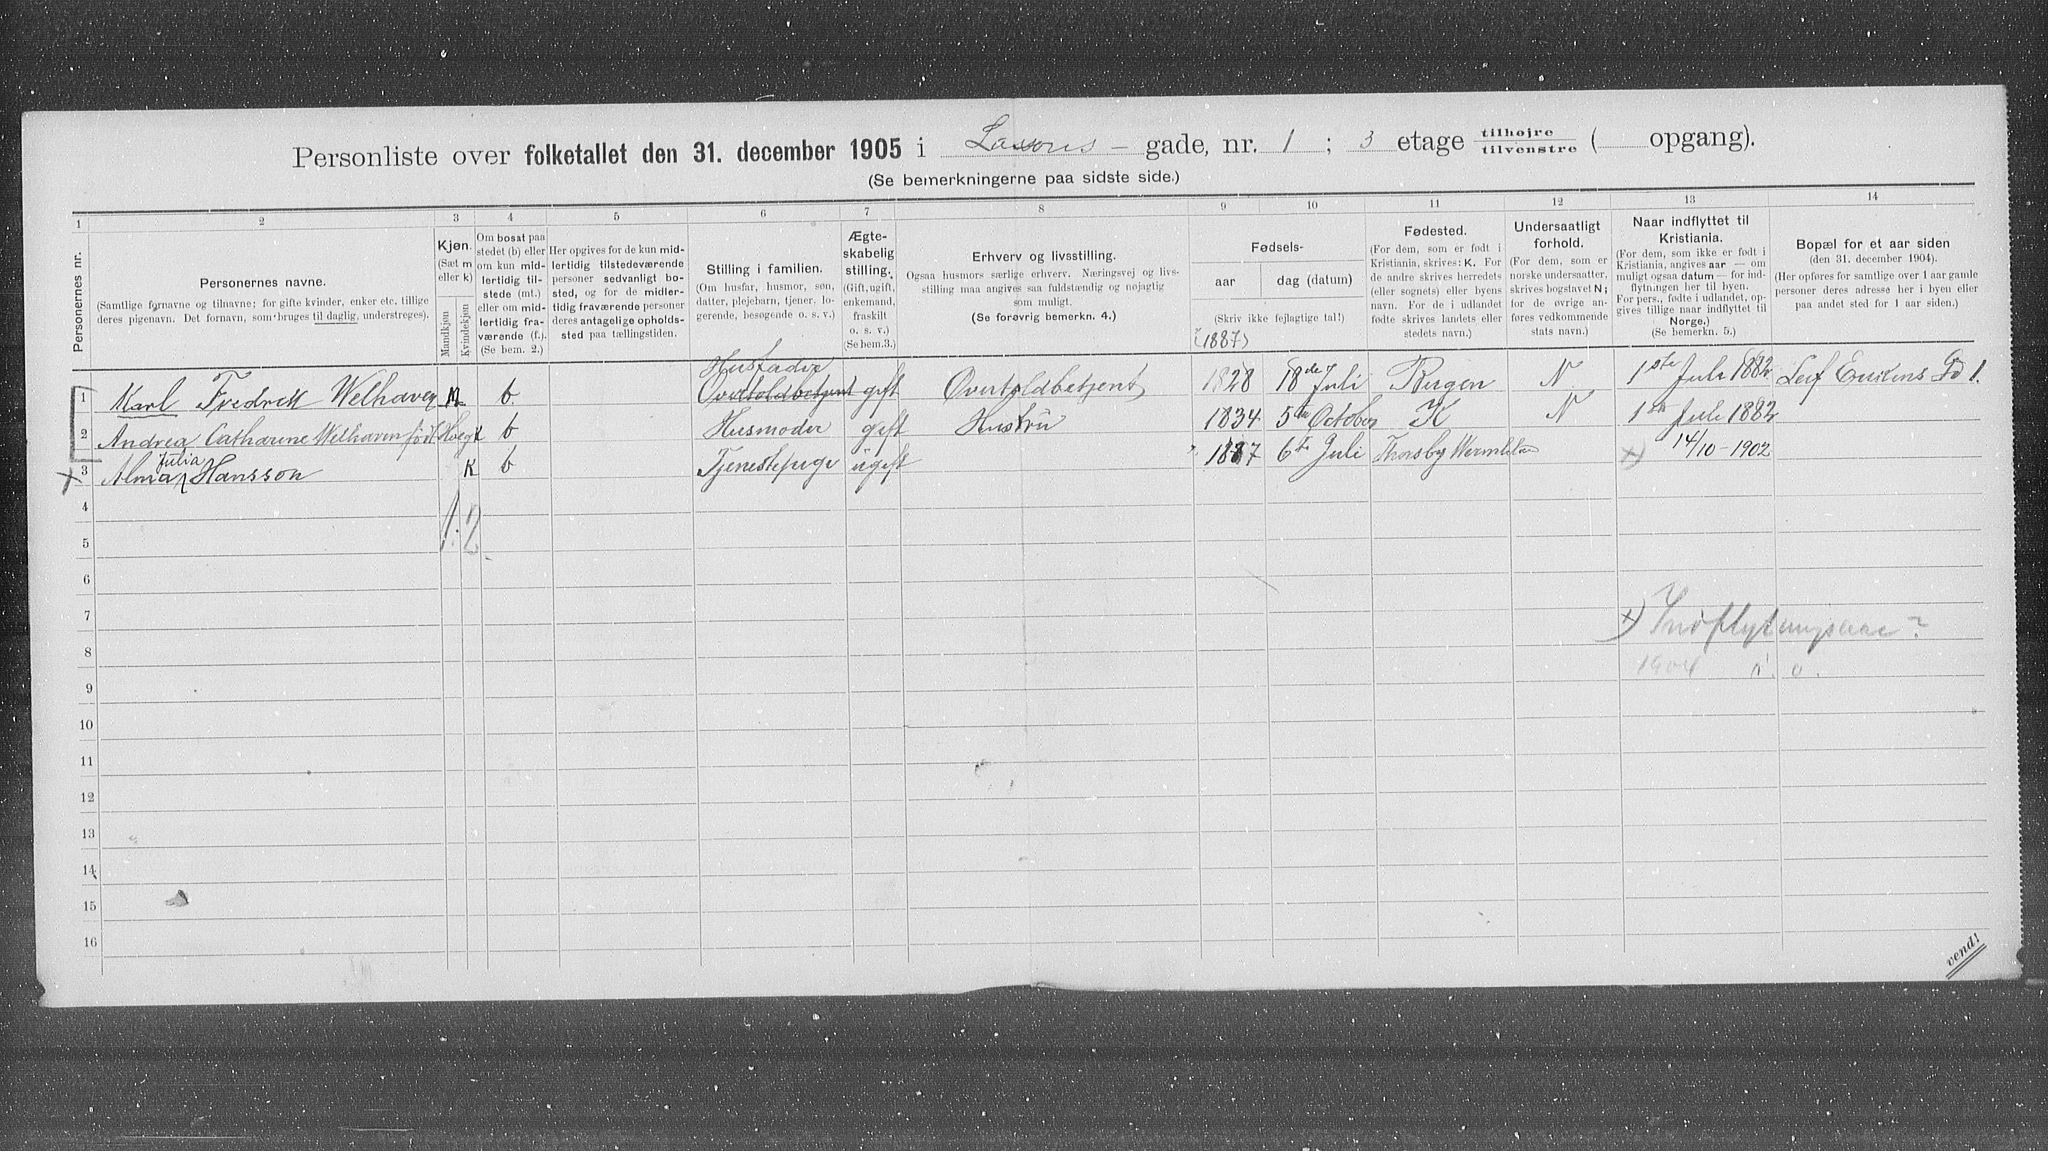 Personliste over folketallet den 31. december 1905 i Lassons – gade, nr. 1 ; 3 etage tilhøjre tilvenstre ( opgang).
(Se bemerkningerne paa sidste side.)
1 2 3 4 5 6 7 8 9 10 11 12 13 14
Personernes nr.
Personernes navne.
(Samtlige fornavne og tilnavne; for gifte kvinder, enker etc. tillige
deres pigenavn. Det fornavn, som bruges til daglig, understreges).
Kjøn.
(Sæt m
eller k)
Mandkjøn
Kvindekjøn
Om bosat paa
stedet (b) eller
om kun mid-
lertidig til-
stede (mt.)
eller om mid-
lertidig fra-
værende (f.).
(Se bem. 2.)
Her opgives for de kun mid-
lertidig tilstedeværende
personer sedvanligt bo-
sted, og for de midler-
tidig fraværende personer
deres antagelige opholds-
sted paa tællingstiden.
Stilling i familien.
(Om husfar, husmor, søn,
datter, plejebarn, tjener, lo-
gerende, besøgende o. s. v.)
Ægte-
skabelig
stilling.
(Gift, ugift,
enkemand,
fraskilt
o. s. v.)
(Se bem. 3.)
Erhverv og livsstilling.
Ogsaa husmors særlige erhverv. Næringsvej og livs-
stilling maa angives saa fuldstændig og nøjagtig
som muligt.
(Se forøvrig bemerkn. 4.)
Fødsels-
aar dag (datum)
(Skriv ikke fejlagtige tal!)
(1887)
Fødested.
(For dem, som er født i
Kristiania, skrives: K. For
de andre skrives herredets
(eller sognets) eller byens
navn. For de i udlandet
fødte skrives landets eller
stedets navn.)
Undersaatligt
forhold.
(For dem, som er
norske undersaatter,
skrives bogstavet N;
for de øvrige an-
føres vedkommende
stats navn.)
Naar indflyttet til
Kristiania.
(For dem, som ikke er født i
Kristiania, angives aar — om
muligt ogsaa datum — for ind-
flytningen her til byen.
For pers., fødte i udlandet, op-
gives tillige naar indflyttet til
Norge.)
(Se bemerkn. 5.)
Bopæl for et aar siden
(den 31. december 1904).
(Her opføres for samtlige over 1 aar gamle
personer deres adresse her i byen eller
paa andet sted for 1 aar siden.)
Husfader
1 Karl Fredrik Welhaven M b. Overtoldbetjent gift Overtoldbetjent 1828 18de Juli Bergen N. 1ste Juli 1882 Leif Eriksens Pd 1.
2 Andrea Catharine Welhaven født Høeg k b Husmoder gift Hustru 1834 5te October K N 1ste Juli 1882
Julia
x 3 Alma Hansson K b Tjenestepige ugift 1887 6te Juli Thorsby Wermland x) 14/10-1902
4
1. 2
5
6
7
x) Indflytningsaar?
8
1904 n. o.
9
10
11
12
13
14
15
16
vend!